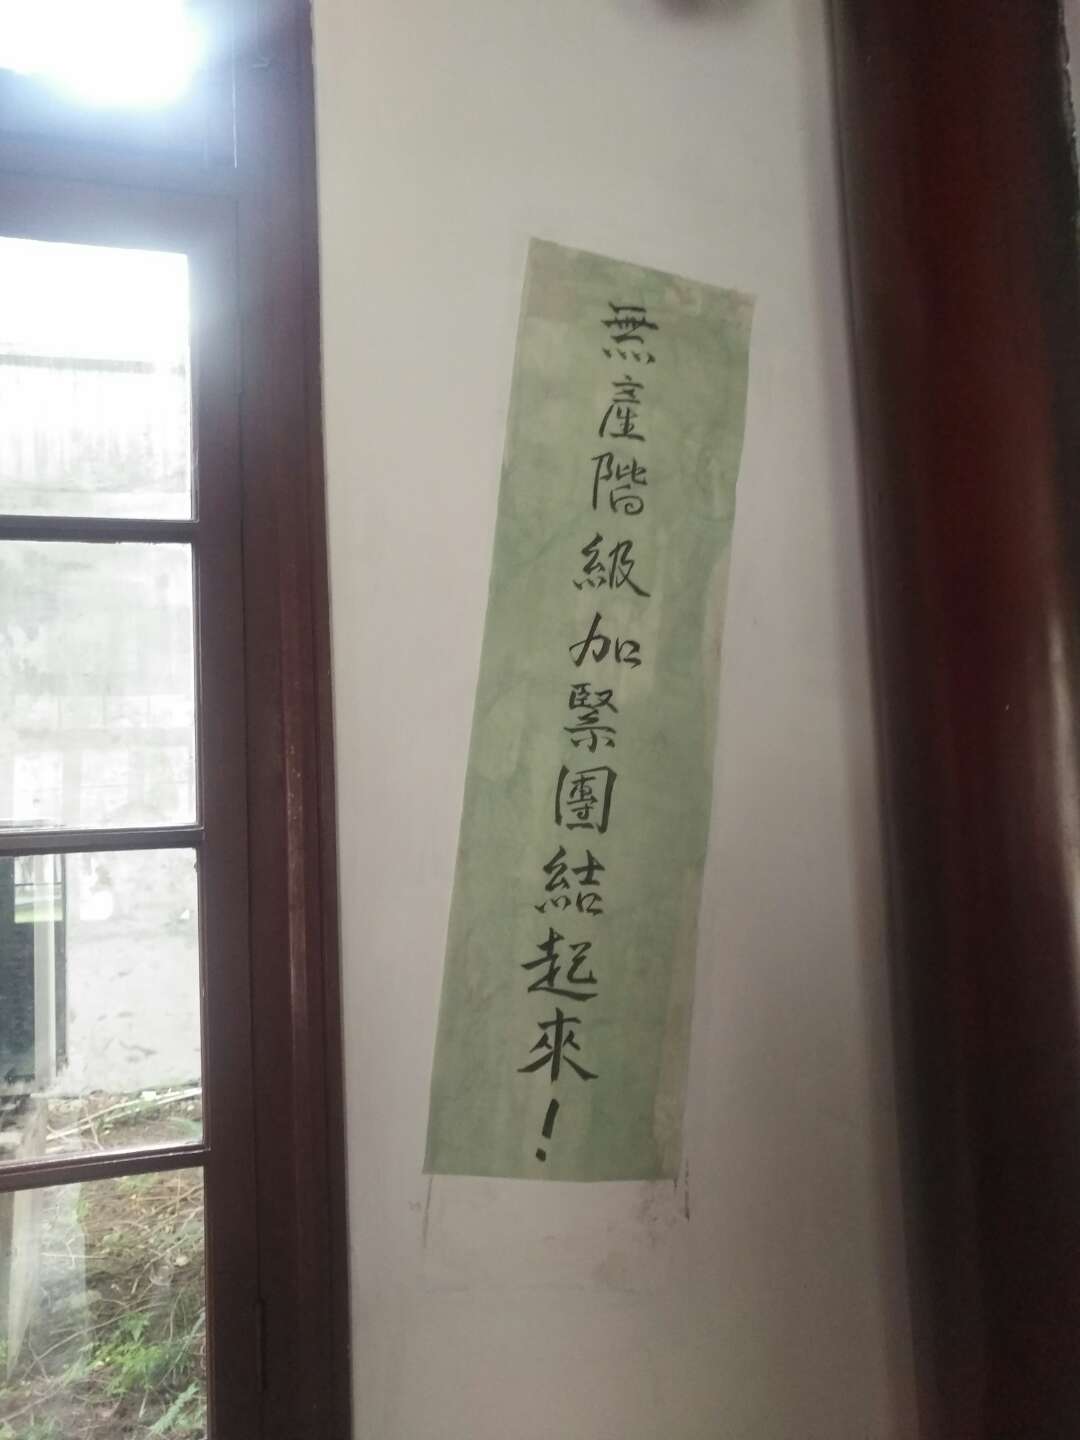 無產階級加緊團結起來！